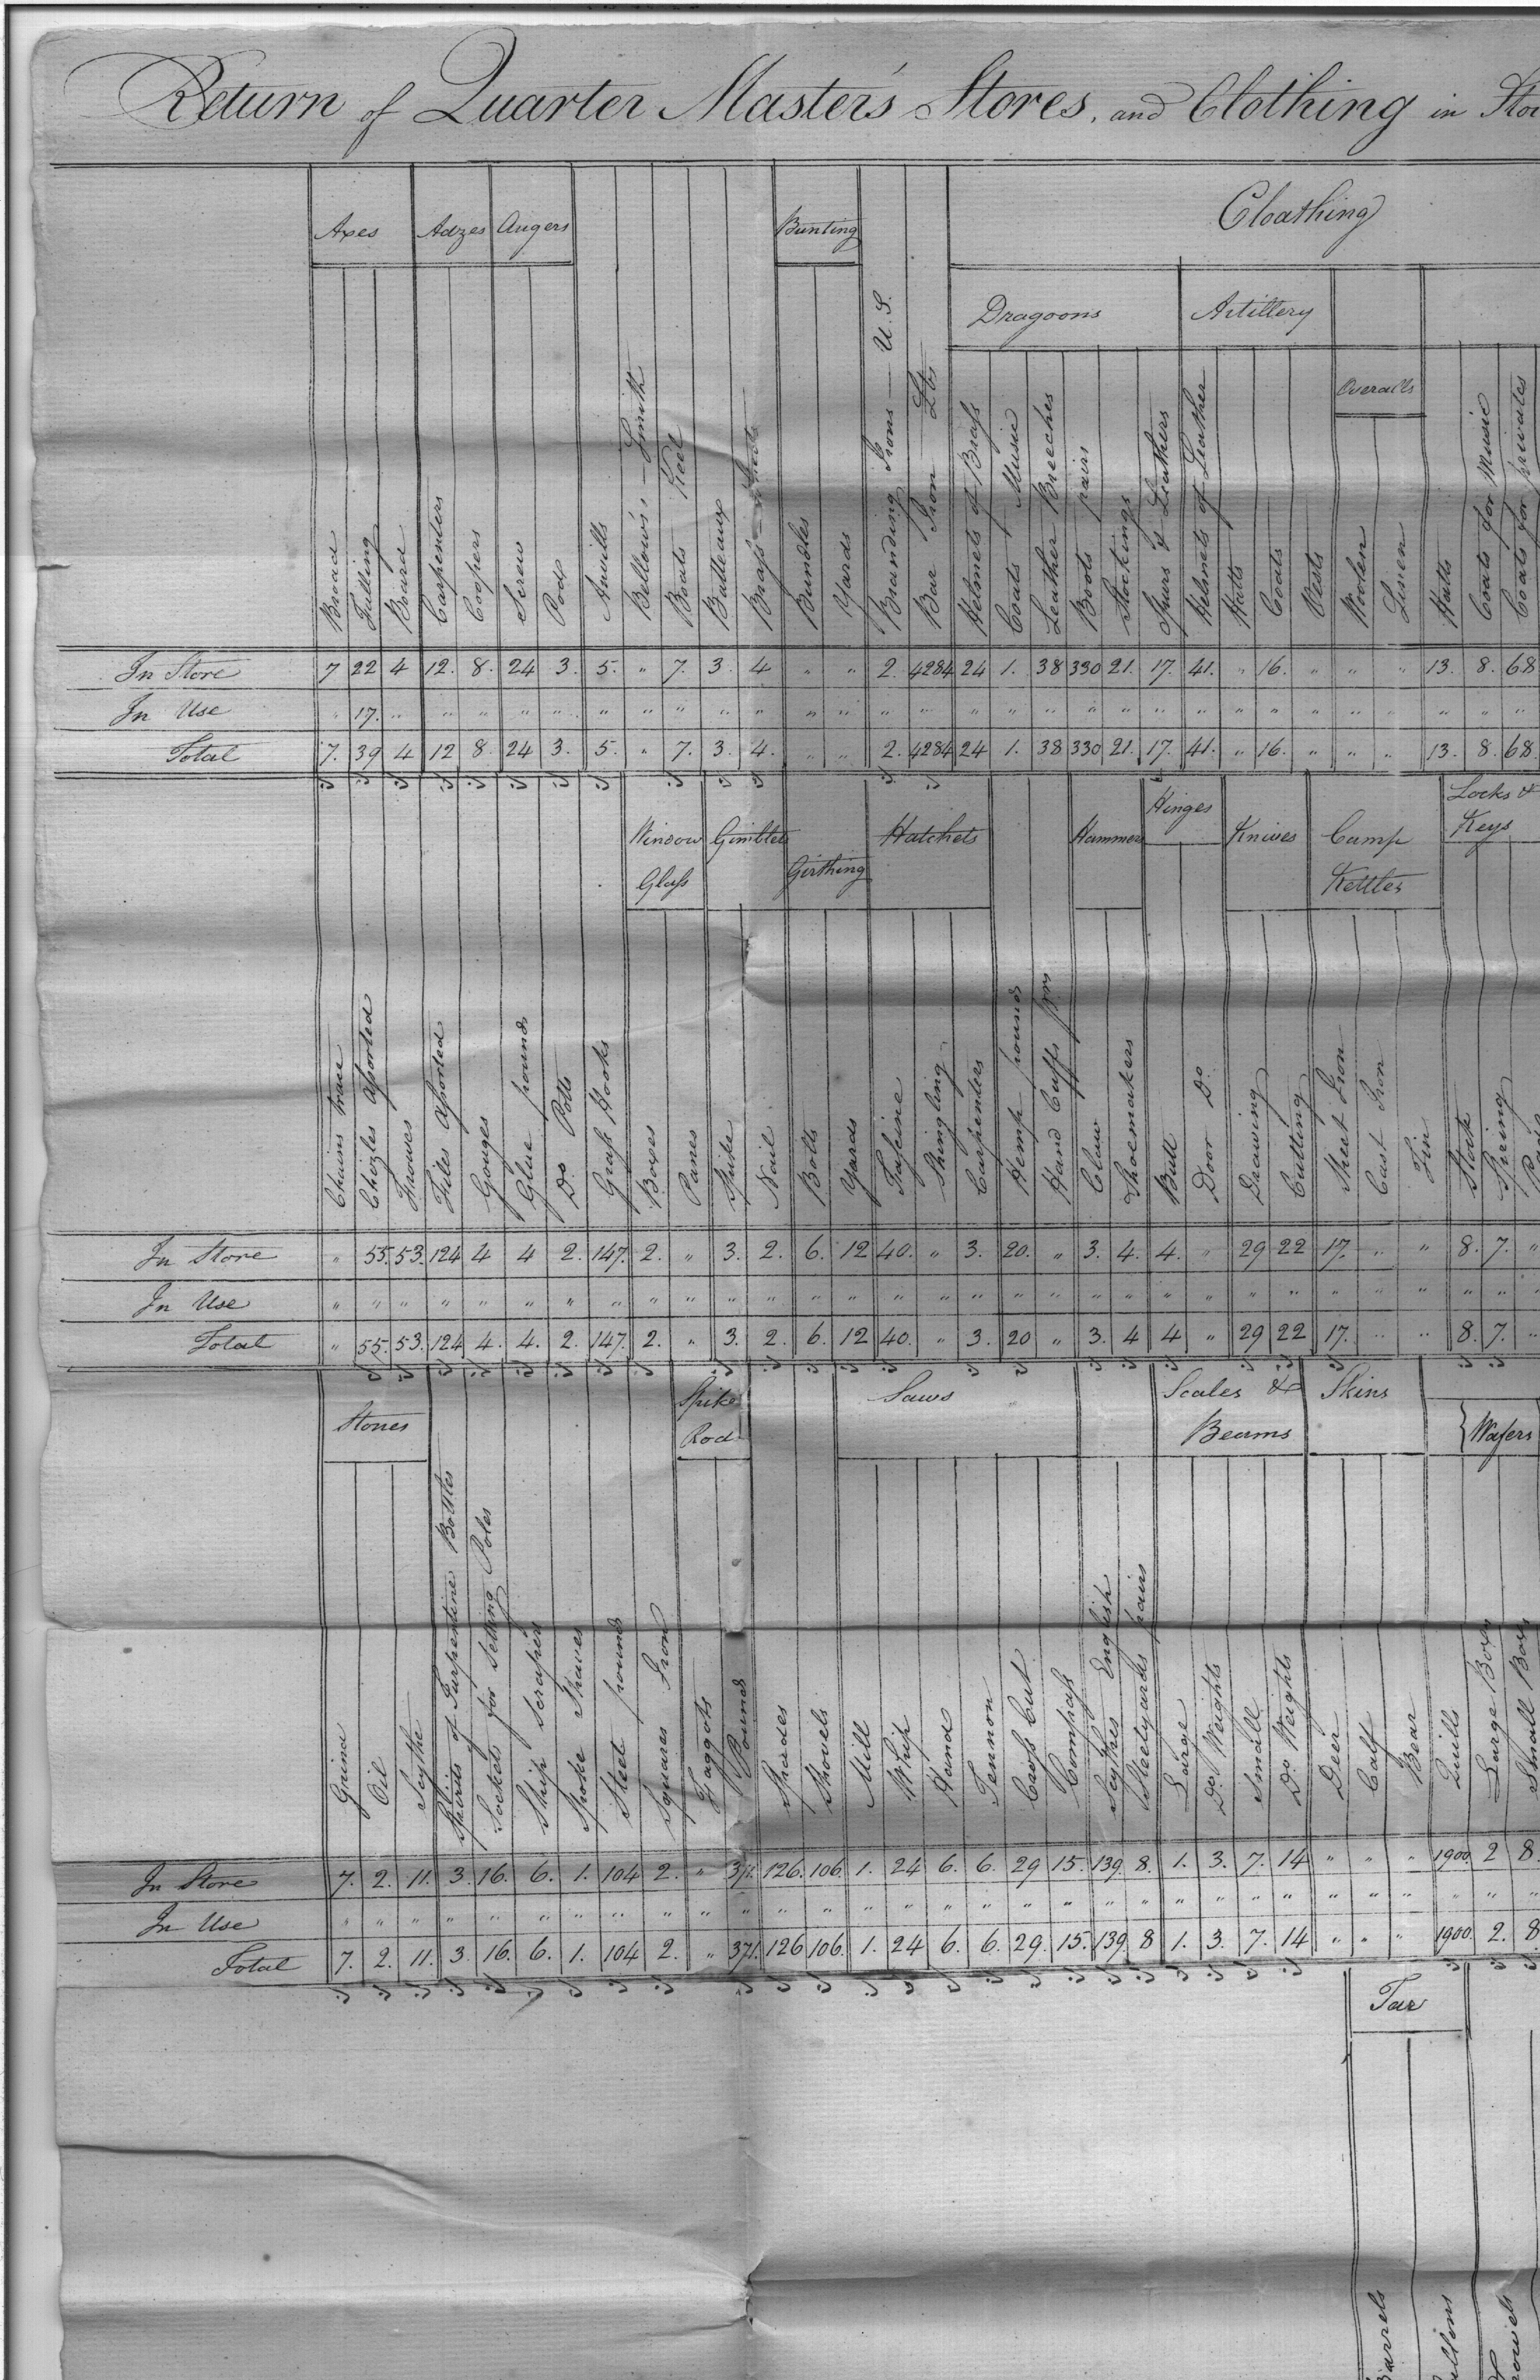 Return of Quarter Master's Stores, and Clothing in
Axes Adzes Augers Bunting Cloathing
Dragoons Artillery
Overalls
Broad Falling Board Carpenters Coopers Screw Pod Anvills Bellows, Smith Boats Keel Batteaux Brass Bundles Yards Branding Irons U.S. Bar Iron Lbs Helmets of Brass Coats Music Leather Breeches Boots pairs Stockings Spurs & Leathers Helmets of Leather Hatts Coats Vests Woolen Linen Hatts Coats for Music Coats for privates
In Store 7 22 4 12. 8. 24 3. 5. " 7. 3. 4 " " 2. 4284 24 1. 38 330 21. 17. 41. " 16. " " " 13. 8. 68
In Use " 17. " " " " " " " " " " " " " " " " " " " " " " " " " " " " "
Total 7. 39 4 12 8. 24 3. 5. " 7. 3. 4. " " 2. 4284 24 1. 38 330 21. 17. 41. " 16. " " " 13. 8. 68
Window Glass Gimblets Girthing Hatchets Hammers Hinges Knives Camp Kettles Locks & Keys
Chains trace Chizles Assorted Frowes Files Assorted Gouges Glue pounds Do Potts Grass Hooks Boxes Panes Spike Nail Bolts Yards Fascine Shingling Carpenters Hemp pounds Hand Cuffs prs Claw Shoemakers Butt Door Do Drawing Cutting Sheet Iron Cast Iron Tin Stock Spring
In Store " 55. 53. 124 4 4 2. 147. 2. " 3. 2. 6. 12 40. " 3. 20. " 3. 4. 4. " 29 22 17. " " 8. 7. "
In Use " " " " " " " " " " " " " " " " " " " " " " " " " " " " " " "
Total " 55. 53. 124 4. 4. 2. 147. 2. " 3. 2. 6. 12 40. " 3. 20 " 3. 4 4 " 29 22 17. " " 8. 7. "
Stones Spike Rod Saws Scales & Beams Skins Wafers
Grind Oil Scythe Spirits of Turpentine Bottles Sockets for Setting Poles Ship Scrapers Spoke Shaves Steel pounds Squares Iron Faggots Pounds Spades Shovels Mill Whip Hand Tennon Cross Cut Compass Scythes English Steelyards pairs Large Do Weights Small Do Weights Deer Calf Bear Quills Large Boxes Small Boxes
In Store 7. 2. 11. 3. 16. 6. 1. 104 2. " 371. 126. 106. 1. 24 6. 6. 29 15. 139 8. 1. 3. 7. 14 " " " 1900. 2 8.
In Use " " " " " " " " " " " " " " " " " " " " " " " " " " " " " " "
Total 7. 2. 11. 3. 16. 6. 1. 104 2. " 371. 126 106. 1. 24 6. 6. 29. 15. 139 8 1. 3. 7. 14 " " " 1900. 2. 8.
Tar